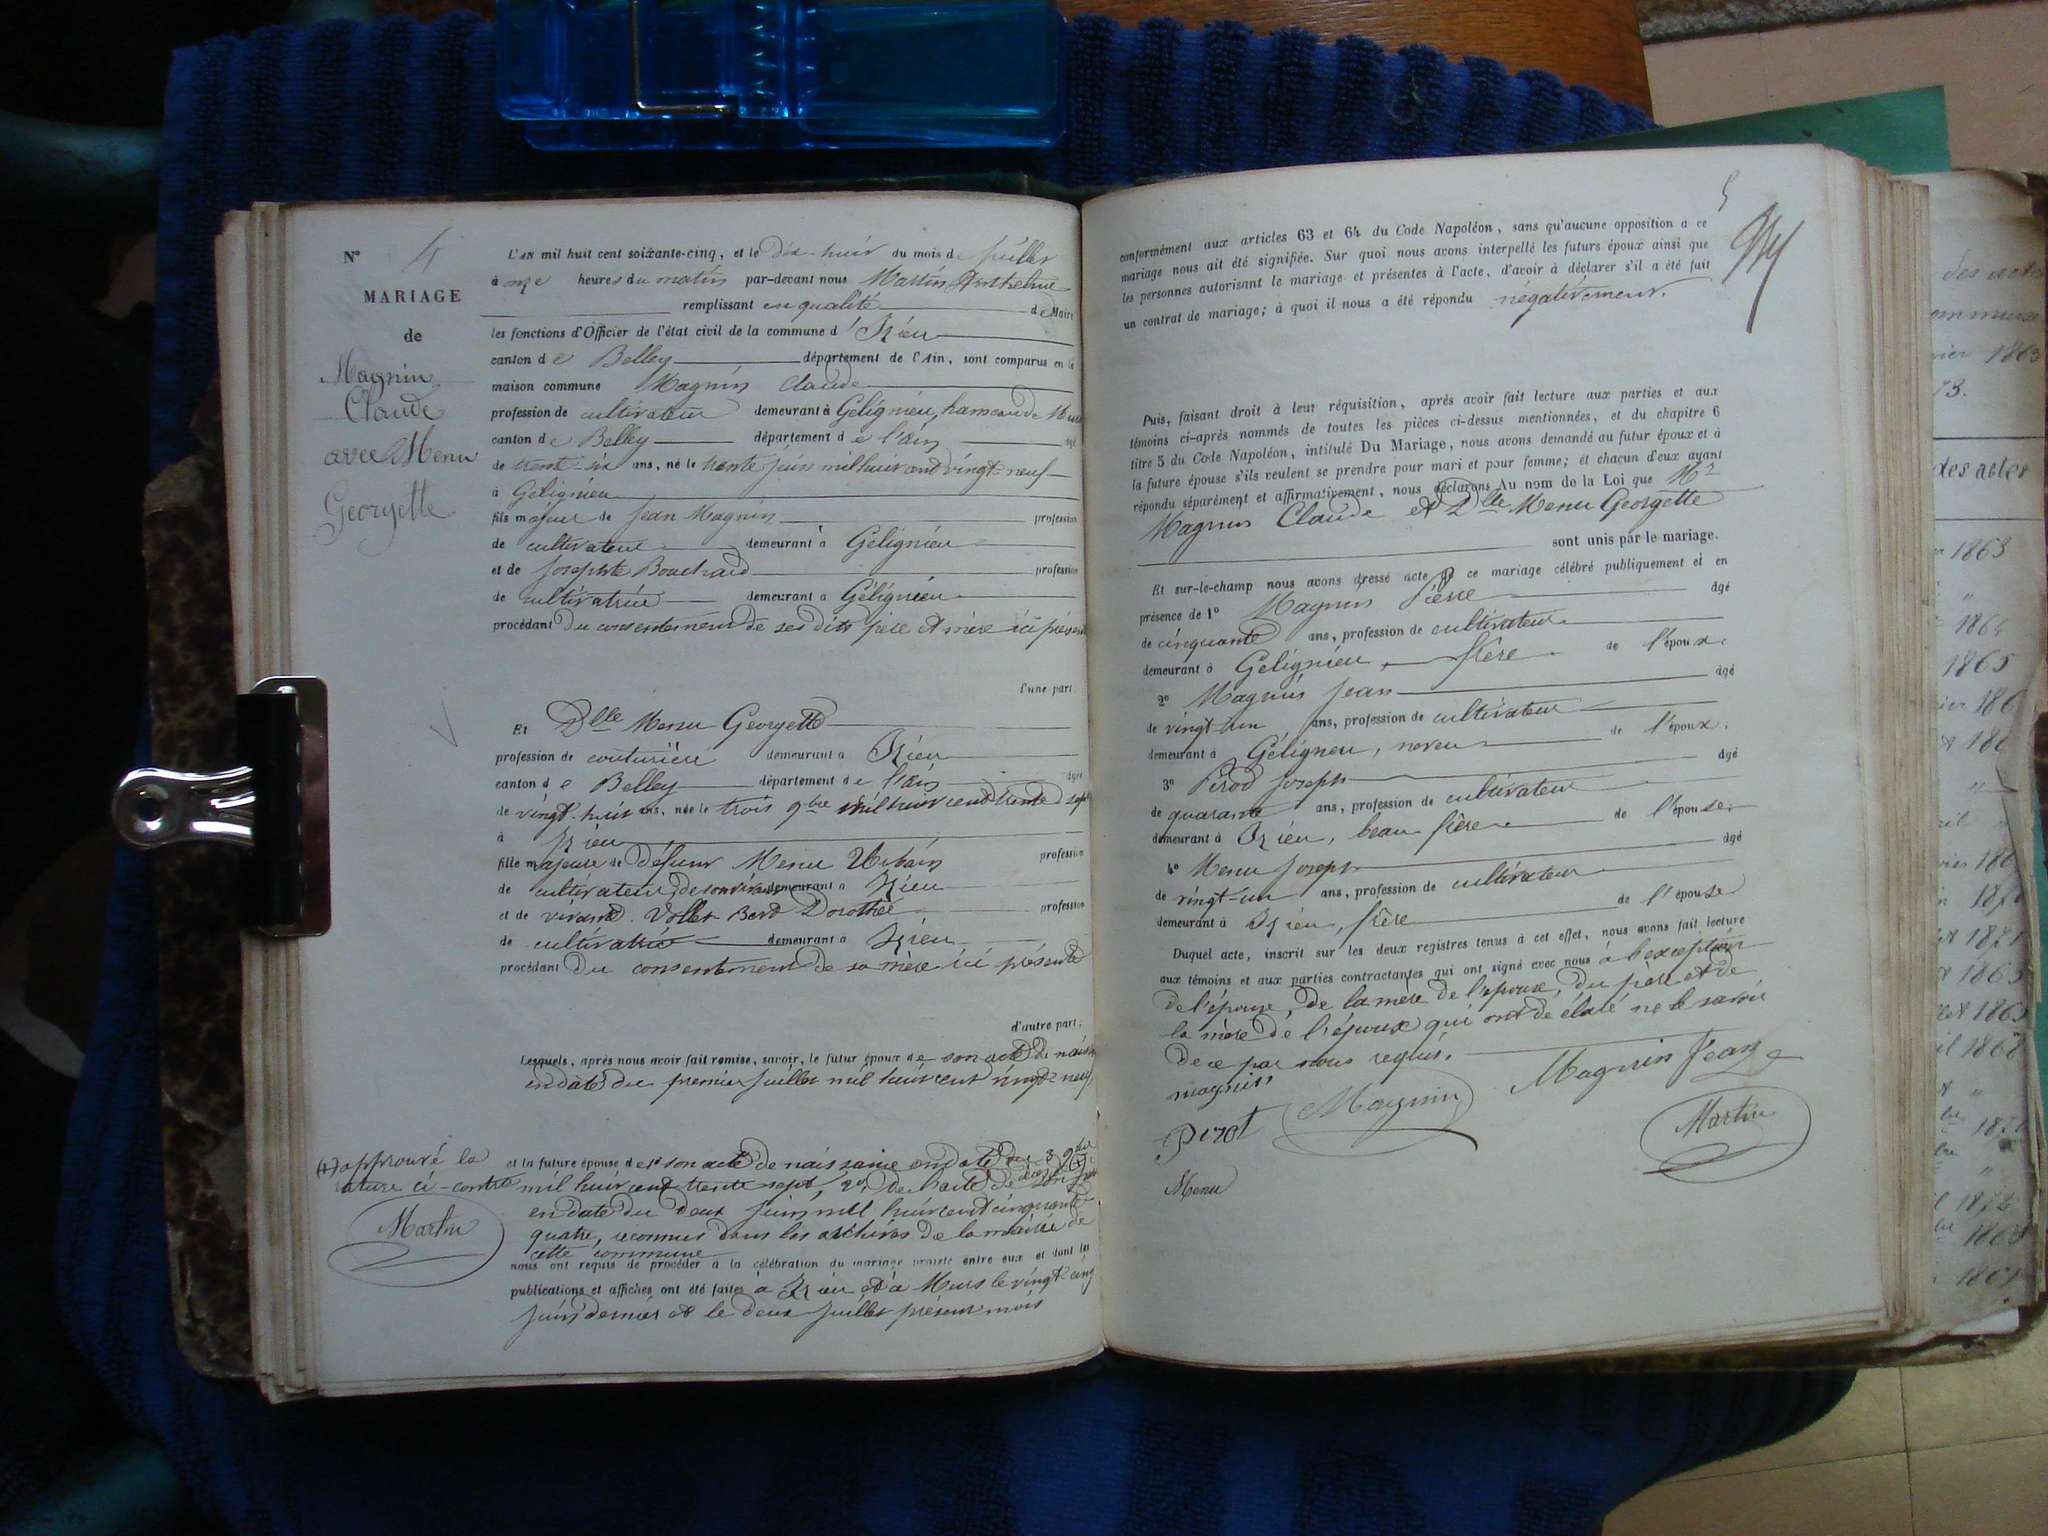 N° 4
MARIAGE
de
Magnin
Claude
avec Menu
Georgette
L'AN mil huit cent soixante-cinq, et le dix-huit du mois de juillet
à onze heures du matin par-devant nous Martin Anthelme
remplissant en qualité de Maire
les fonctions d'Officier de l'état civil de la commune d'Izieu
canton de Belley département de l'Ain, sont comparus en la
maison commune Magnin Claude
profession de cultivateur demeurant à Gélignieu, hameau de Murs
canton de Belley département de l'ain âgé
de trente-six ans, né le trente juin mil huit cent vingt-neuf
à Gélignieu
fils majeur de Jean Magnin profession
de cultivateur demeurant à Gélignieu
et de Josephte Bouchard profession
de cultivatrice demeurant à Gélignieu
procédant du consentement de ses dits père et mère ici présents
d'une part.
Et Dlle Menu Georgette
profession de couturière demeurant à Izieu
canton de Belley département de l'ain âgée
de vingt-huit ans, née le trois 9bre mil huit cent trente sept
à Izieu
fille majeure de défunt Menu Urbain profession
de cultivateur, de son vivant demeurant à Izieu
et de vivante Vollet Bert Dorothée profession
de cultivatrice demeurant à Izieu
procédant du consentement de sa mère ici présente
d'autre part;
Lesquels, après nous avoir fait remise, savoir, le futur époux de son acte de naiss
en date du premier juillet mil huit cent vingt-neuf,
et la future épouse de 1° son acte de naissance en date du 3 9bre
mil huit cent trente sept, 2° de l'acte de décès (1) de son père
en date du deux juin mil huit cent cinquante
quatre, reconnus dans les archives de la mairie de
cette commune
nous ont requis de procéder à la célébration du mariage projeté entre eux et dont les
publications et affiches ont été faites à Izieu et à Murs le vingt-cinq
juin dernier et le deux juillet présent mois
(1) approuvé la
rature ci-contre
Martin
5
conformément aux articles 63 et 64 du Code Napoléon, sans qu'aucune opposition a ce
mariage nous ait été signifiée. Sur quoi nous avons interpellé les futurs époux ainsi que
les personnes autorisant le mariage et présentes à l'acte, d'avoir à déclarer s'il a été fait
un contrat de mariage; à quoi il nous a été répondu négativement.
Puis, faisant droit à leur réquisition, après avoir fait lecture aux parties et aux
témoins ci-après nommés de toutes les pièces ci-dessus mentionnées, et du chapitre 6
titre 5 du Code Napoléon, intitulé Du Mariage, nous avons demandé au futur époux et à
la future épouse s'ils veulent se prendre pour mari et pour femme; et chacun d'eux ayant
répondu séparément et affirmativement, nous déclarons Au nom de la Loi que Mr
Magnin Claude et Dlle Menu Georgette
sont unis par le mariage.
Et sur-le-champ nous avons dressé acte de ce mariage célébré publiquement et en
présence de 1° Magnin Pierre âgé
de cinquante ans, profession de cultivateur
demeurant à Gélignieu, frère de l'époux.
2° Magnin Jean âgé
de vingt-un ans, profession de cultivateur
demeurant à Gélignieu, neveu de l'époux.
3° Pérod Joseph âgé
de quarante ans, profession de cultivateur
demeurant à Izieu, beau frère de l'épouse.
4° Menu Joseph âgé
de vingt-un ans, profession de cultivateur
demeurant à Izieu, frère de l'épouse
Duquel acte, inscrit sur les deux registres tenus à cet effet, nous avons fait lecture
aux témoins et aux parties contractantes qui ont signé avec nous à l'exception
de l'épouse, de la mère de l'épouse, du père et de
la mère de l'époux qui ont déclaré ne le savoir
de ce par nous requis.
magnin Magnin Magnin Jean
Pezot Martin
Menu
des actes
1863
73.
des actes
1863
1864
1865
1871
1865
1865
1868
1874
1868